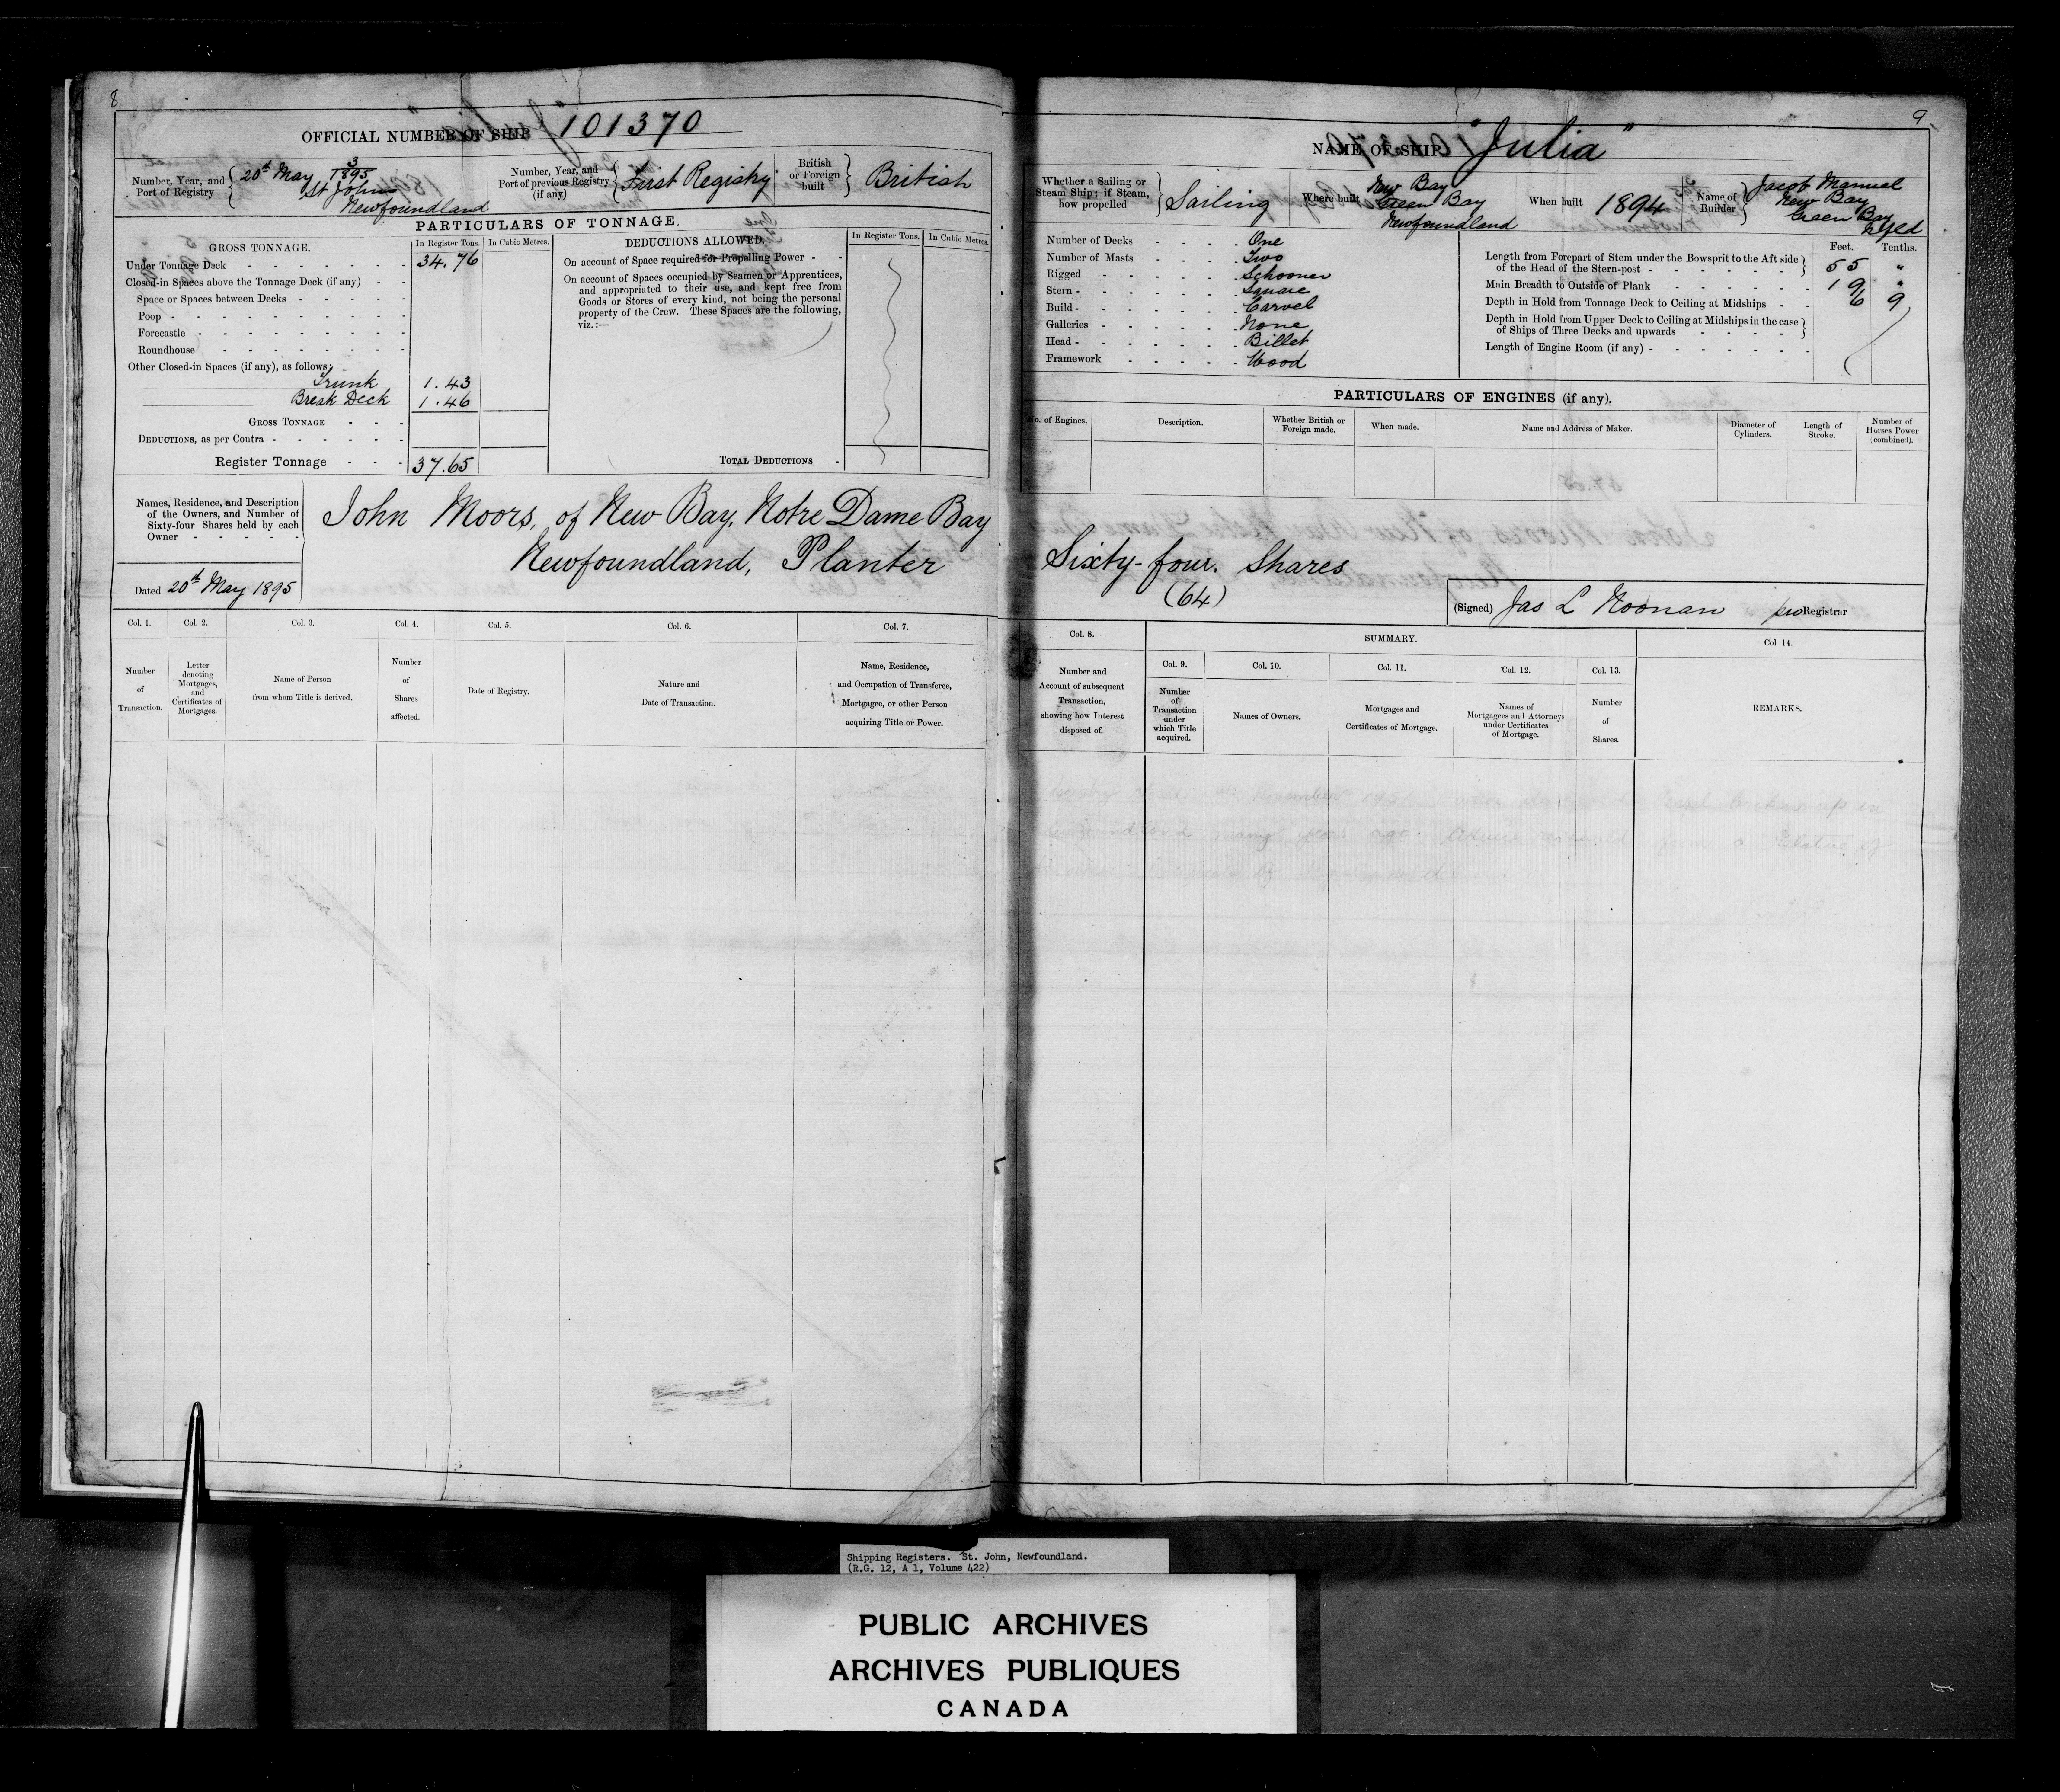 8
OFFICIAL NUMBER OF SHIP 101370
Number, Year, and
Port of Registry
20th May 3/1895
St Johns
Newfoundland
Number, Year, and
Port of previous Registry
(if any)
First Registry
British
or Foreign
built
British
PARTICULARS OF TONNAGE.
GROSS TONNAGE.
In Register Tons.
In Cubic Metres.
Under Tonnage Deck - - - - - - - 34.76
Closed-in Spaces above the Tonnage Deck (if any) - -
Space or Spaces between Decks - - - - -
Poop - - - - - - - - -
Forecastle - - - - - - - -
Roundhouse - - - - - - -
Other Closed-in Spaces (if any), as follows:
Trunk 1.43
Break Deck 1.46
GROSS TONNAGE - - -
DEDUCTIONS, as per Contra - - - - - -
Register Tonnage - - - 37.65
DEDUCTIONS ALLOWED.
In Register Tons.
In Cubic Metres.
On account of Space required for Propelling Power - -
On account of Spaces occupied by Seamen or Apprentices,
and appropriated to their use, and kept free from
Goods or Stores of every kind, not being the personal
property of the Crew. These Spaces are the following,
viz.:—
TOTAL DEDUCTIONS -
Names, Residence, and Description
of the Owners, and Number of
Sixty-four Shares held by each
Owner - - - - -
John Moors, of New Bay, Notre Dame Bay
Newfoundland, Planter
Dated 20th May 1895
Col. 1.
Number
of
Transaction.
Col. 2.
Letter
denoting
Mortgages,
and
Certificates of
Mortgages.
Col. 3.
Name of Person
from whom Title is derived.
Col. 4.
Number
of
Shares
affected.
Col. 5.
Date of Registry.
Col. 6.
Nature and
Date of Transaction.
Col. 7.
Name, Residence,
and Occupation of Transferee,
Mortgagee, or other Person
acquiring Title or Power.
9
NAME OF SHIP "Julia"
Whether a Sailing or
Steam Ship; if Steam,
how propelled
Sailing
Where built
New Bay
Green Bay
Newfoundland
When built 1894
Name of
Builder
Jacob Manuel
New Bay
Green Bay
Nfld
Number of Decks - - - - One
Number of Masts - - - - Two
Rigged - - - - - Schooner
Stern - - - - - - Square
Build - - - - - - Carvel
Galleries - - - - - None
Head - - - - - - Billet
Framework - - - - Wood
Feet. Tenths.
Length from Forepart of Stem under the Bowsprit to the Aft side
of the Head of the Stern-post - - - - - - 55 "
Main Breadth to Outside of Plank - - - - - 19 "
Depth in Hold from Tonnage Deck to Ceiling at Midships - - 6 9
Depth in Hold from Upper Deck to Ceiling at Midships in the case
of Ships of Three Decks and upwards - - - -
Length of Engine Room (if any) - - - - - - -
PARTICULARS OF ENGINES (if any).
No. of Engines.
Description.
Whether British or
Foreign made.
When made.
Name and Address of Maker.
Diameter of
Cylinders.
Length of
Stroke.
Number of
Horses Power
(combined).
Sixty-four. Shares
(64)
(Signed) Jas L Noonan pro Registrar
Col. 8.
Number and
Account of subsequent
Transaction,
showing how Interest
disposed of.
SUMMARY.
Col. 9.
Number
of
Transaction
under
which Title
acquired.
Col. 10.
Names of Owners.
Col. 11.
Mortgages and
Certificates of Mortgage.
Col. 12.
Names of
Mortgagees and Attorneys
under Certificates
of Mortgage.
Col. 13.
Number
of
Shares.
Col 14.
REMARKS.
November 1951 up in
many years ago. Advice received from a Relative of
owner
Shipping Registers. St. John, Newfoundland.
(R.G. 12, A 1, Volume 422)
PUBLIC ARCHIVES
ARCHIVES PUBLIQUES
CANADA